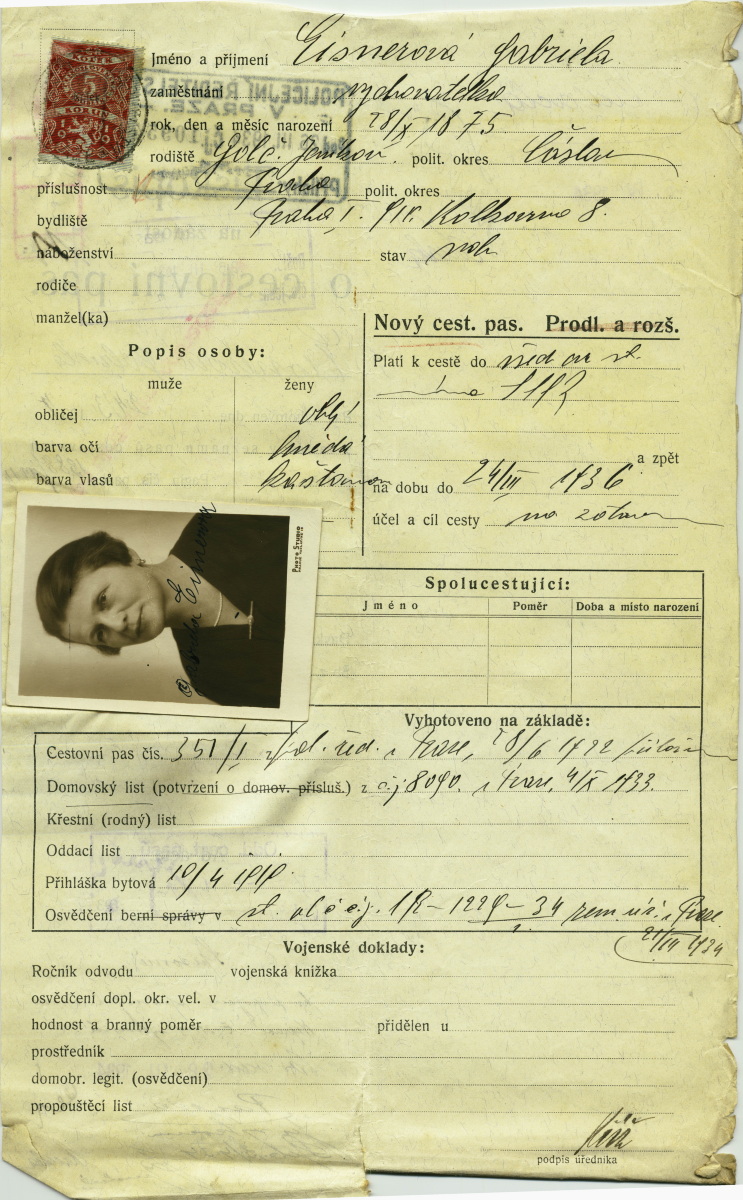 Jméno a příjmení Eisnerová Gabriela
zaměstnání vychovatelka
rok, den a měsíc narození 28/X 1875
rodiště Golč. Jeníkov polit. okres Čáslav
příslušnost Praha polit. okres
bydliště Praha I. Kolkovna 8.
náboženství stav
rodiče
manžel(ka)
Popis osoby:
muže ženy
obličej oblý
barva očí hnědá
barva vlasů kaštanová
Nový cest. pas. Prodl. a rozš.
Platí k cestě do
a zpět
na dobu do 24/III 1936
účel a cíl cesty na zotav
PHOTO STUDIO
Gabriela Eisnerová
Spolucestující:
Jméno Poměr Doba a místo narození
Vyhotoveno na základě:
Cestovní pas čís. 351/I pol. řed. v Praze, 28/6 1922
Domovský list (potvrzení o domov. přísluš.) z č.j. 8090. v Praze, 4/X 1933.
Křestní (rodný) list
Oddací list
Přihláška bytová 10/4 1919.
Osvědčení berní správy v 1R-1229-34 v Praze
21/III 1934
Vojenské doklady:
Ročník odvodu vojenská knížka
osvědčení dopl. okr. vel. v
hodnost a branný poměr přidělen u
prostředník
domobr. legit. (osvědčení)
propouštěcí list
podpis úředníka
5
KORUN
POLICEJNÍ ŘEDITELS
V PRAZE
o cestovní pas